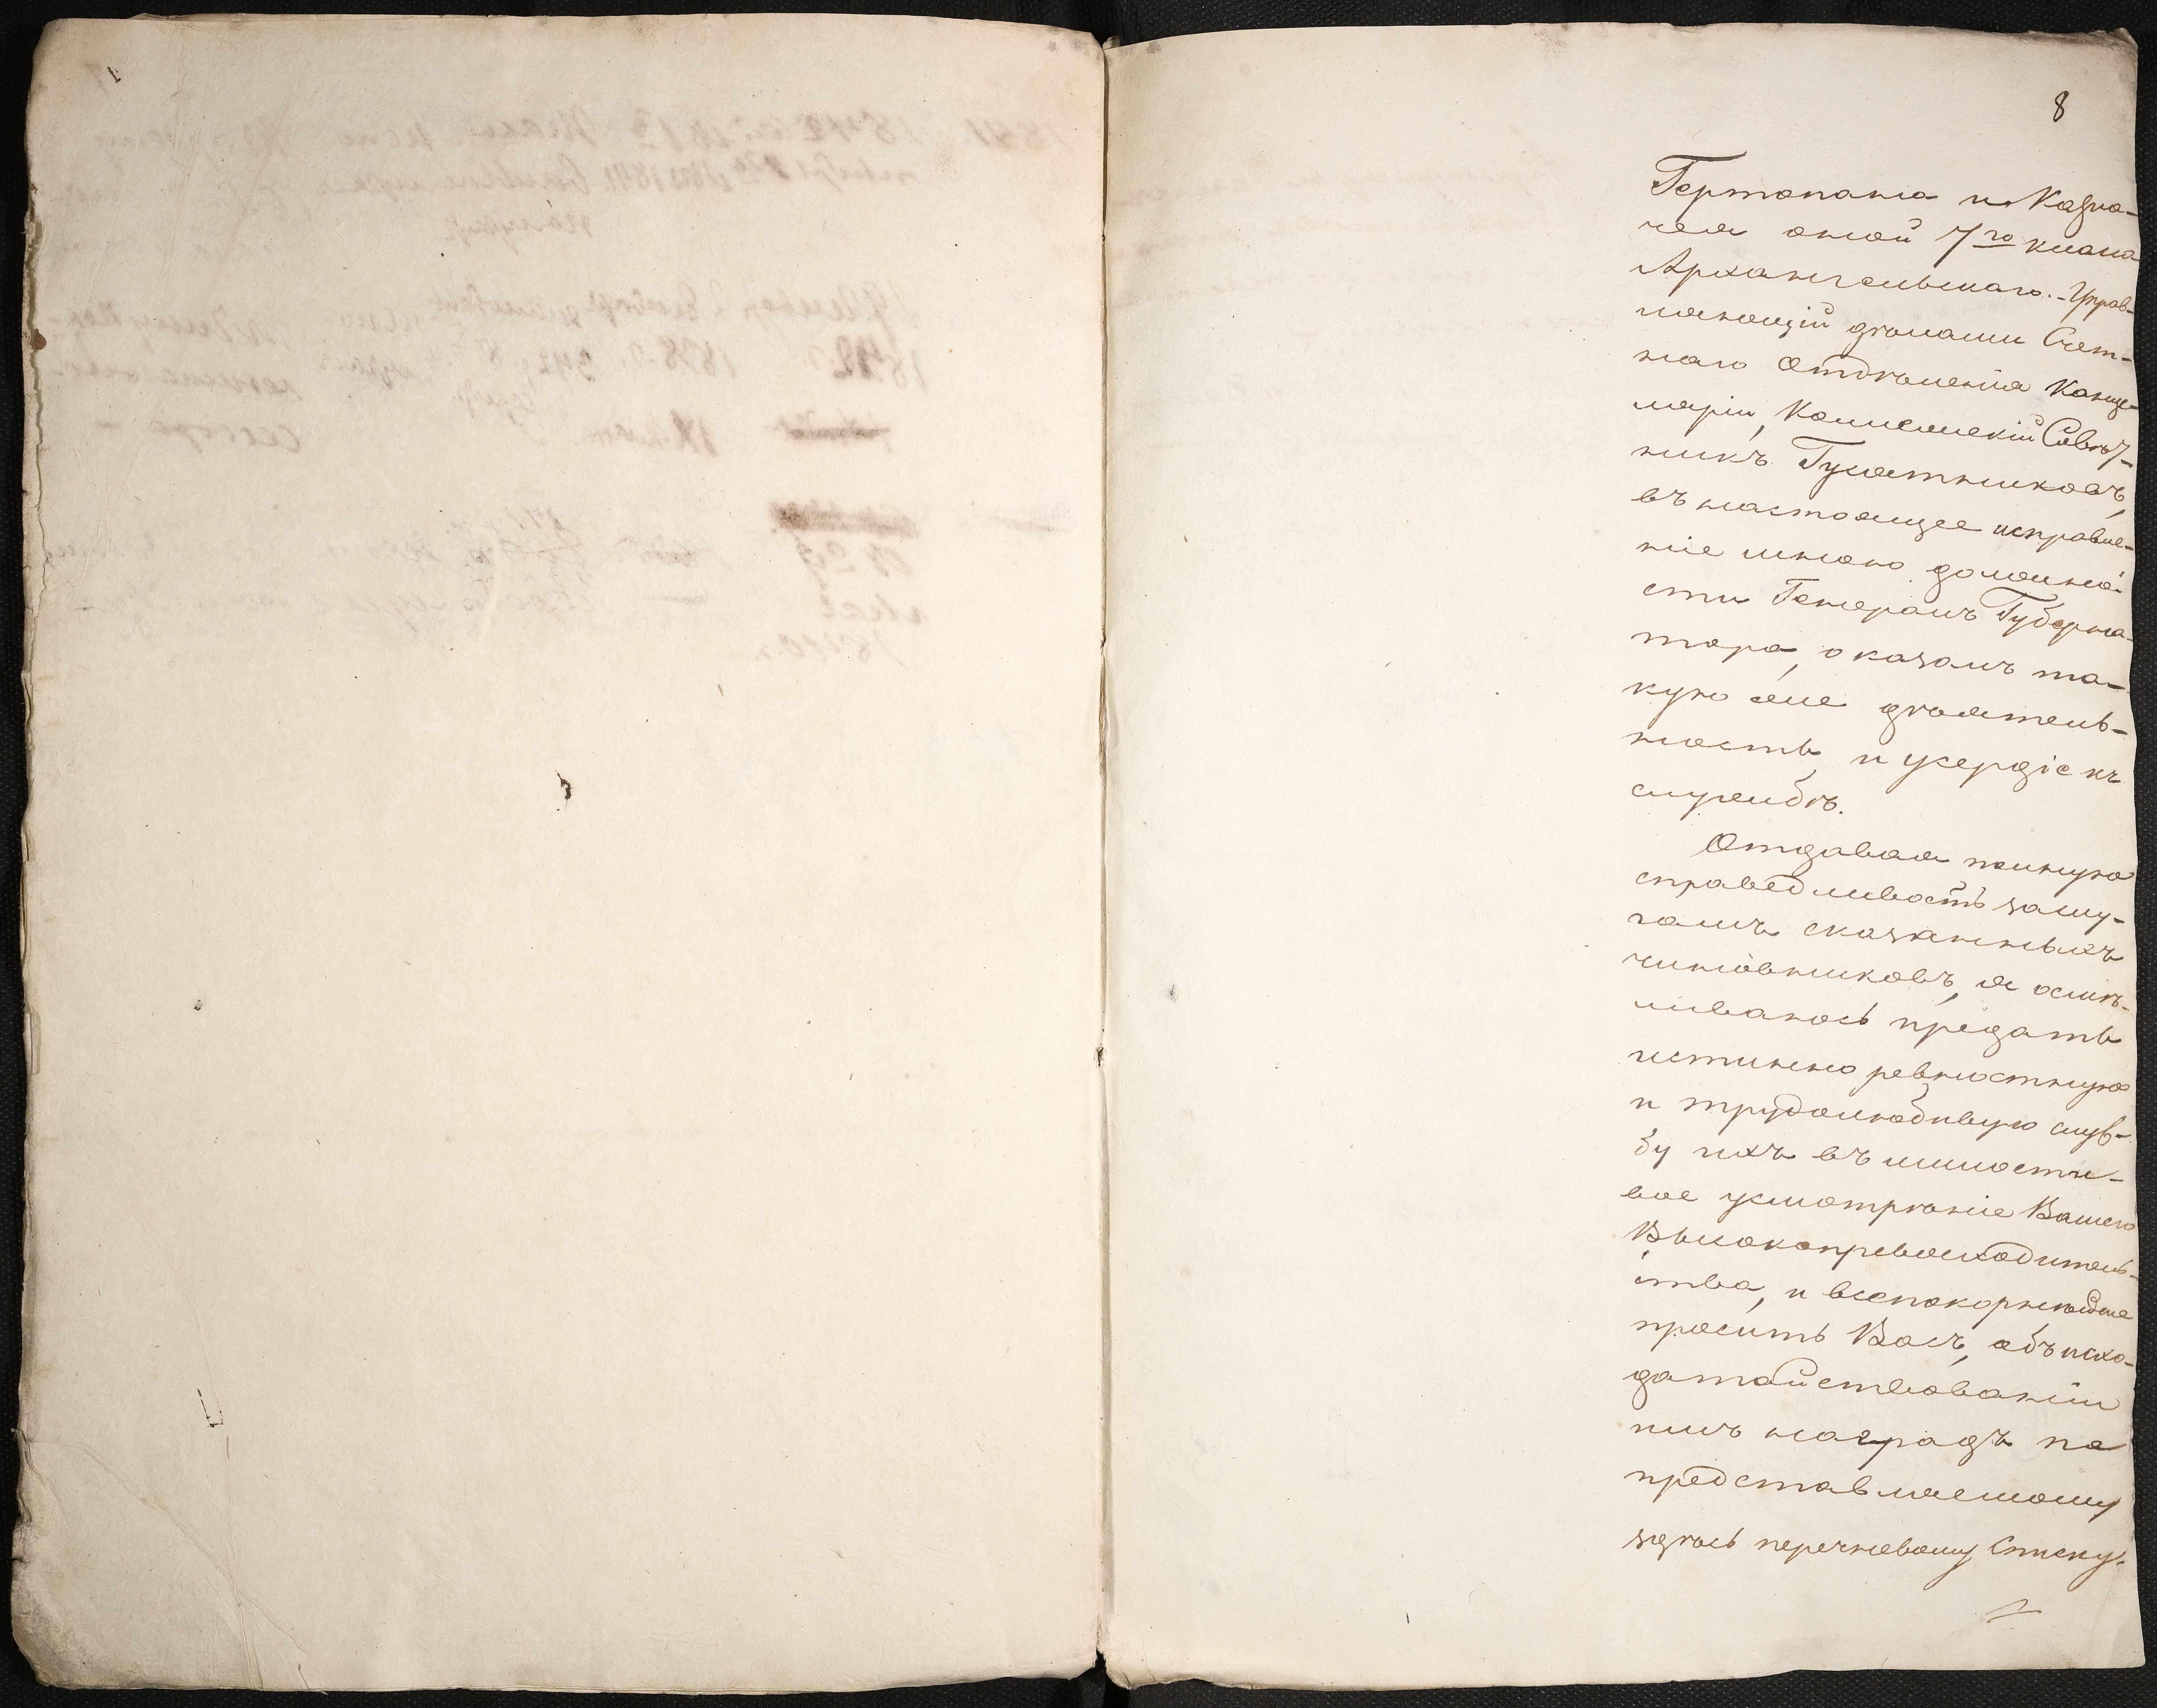 8
Гертопана и Казна-
чея оной 7го класа
Архангельскаго. Управ-
ляющій дѣлами Счет-
наго Отдѣленія Канце-
ляріи, Коллежскій Совѣт-
никъ Гулятниковъ,
въ настоящее исправле-
ніе мною должно-
сти Генералъ Губерна-
тора, оказалъ та-
кую же дѣятель-
ность и усердіе къ
службѣ.
Отдавая полную
справедливость заслу-
гамъ сказанныхъ
чиновниковъ, я осмѣ-
ливаюсь предать
истинно ревностную
и трудолюбивую служ-
бу ихъ въ милости-
вое усмотрѣніе Вашего
Высокопревосходитель-
ства, и всепокорнѣйше
просить Васъ, объ исхо-
датайствованіи
имъ наградъ по
представляемому
здѣсь перечневому Списку.